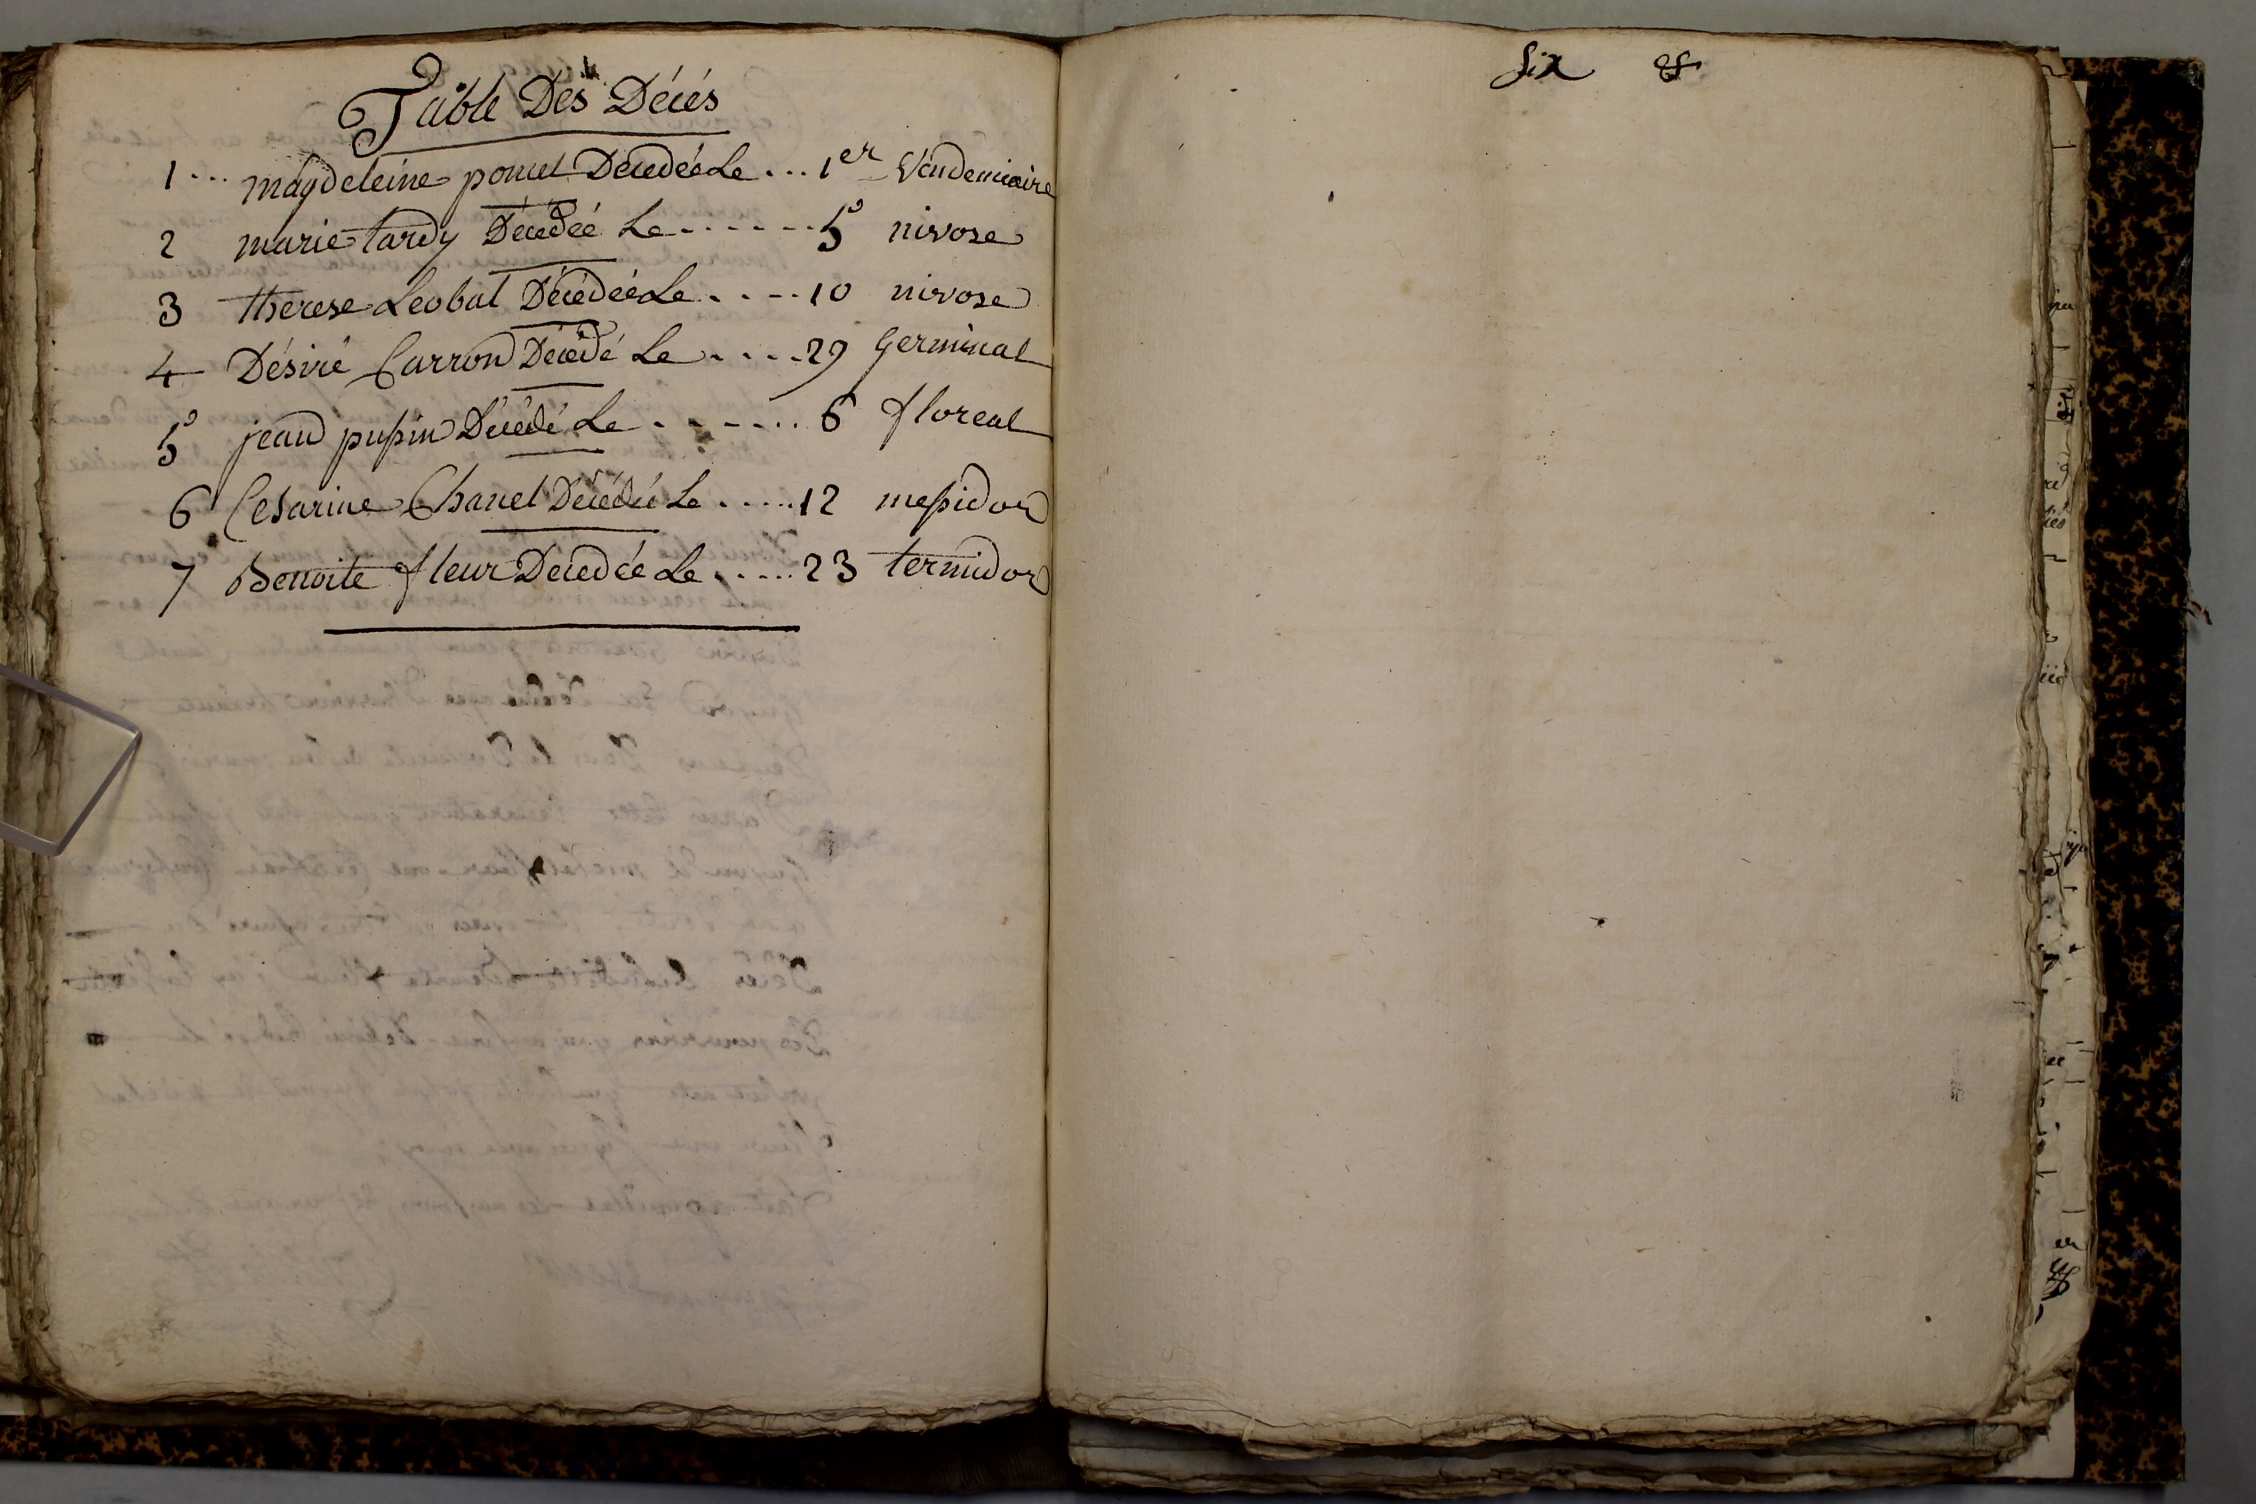 Table Des Décés
1... magdeleine poncet Décedée Le ... 1er Vendemiaire
2 marie tardy Décedéé Le ...... 5 nivose
3 therese Leobal Décédéé Le .... 10 nivose
4 Désiré Carron Décédé Le .... 29 Germinal
5 jean pupin Décédé Le ....... 6 floreal
6 Cesarine Chanel Décédéé Le ..... 12 messidor
7 Benoite fleur Decedée Le ..... 23 termidor
Six